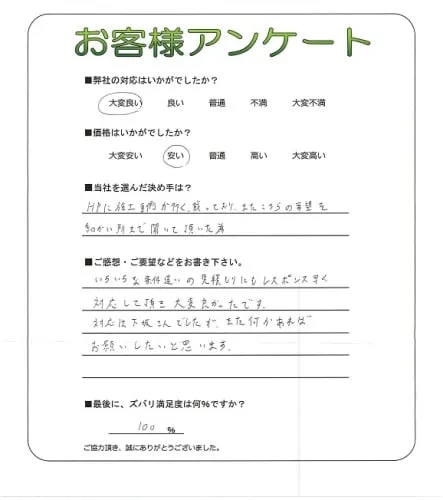 お客様アンケート
■弊社の対応はいかがでしたか?
大変良い 良い 普通 不満 大変不満
■価格はいかがでしたか?
大変安い 安い 普通 高い 大変高い
■当社を選んだ決め手は?
HPに施工事例が多く載っており、またこちらの希望を
細かい所まで聞いて頂いた為
■ご感想・ご要望などをお書き下さい。
いろいろな条件違いの見積もりにもレスポンス早く
対応して頂き大変良かったです。
対応は下坂さんでしたが、また何かあれば
お願いしたいと思います。
■最後に、ズバリ満足度は何%ですか?
100 %
ご協力頂き、誠にありがとうございました。